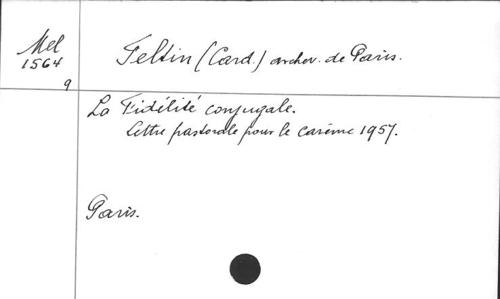 Mel
1564
9
Feltin (Card.) archev. de Paris.
La Fidélité conjugale.
lettre pastorale pour le carême 1957.
Paris.